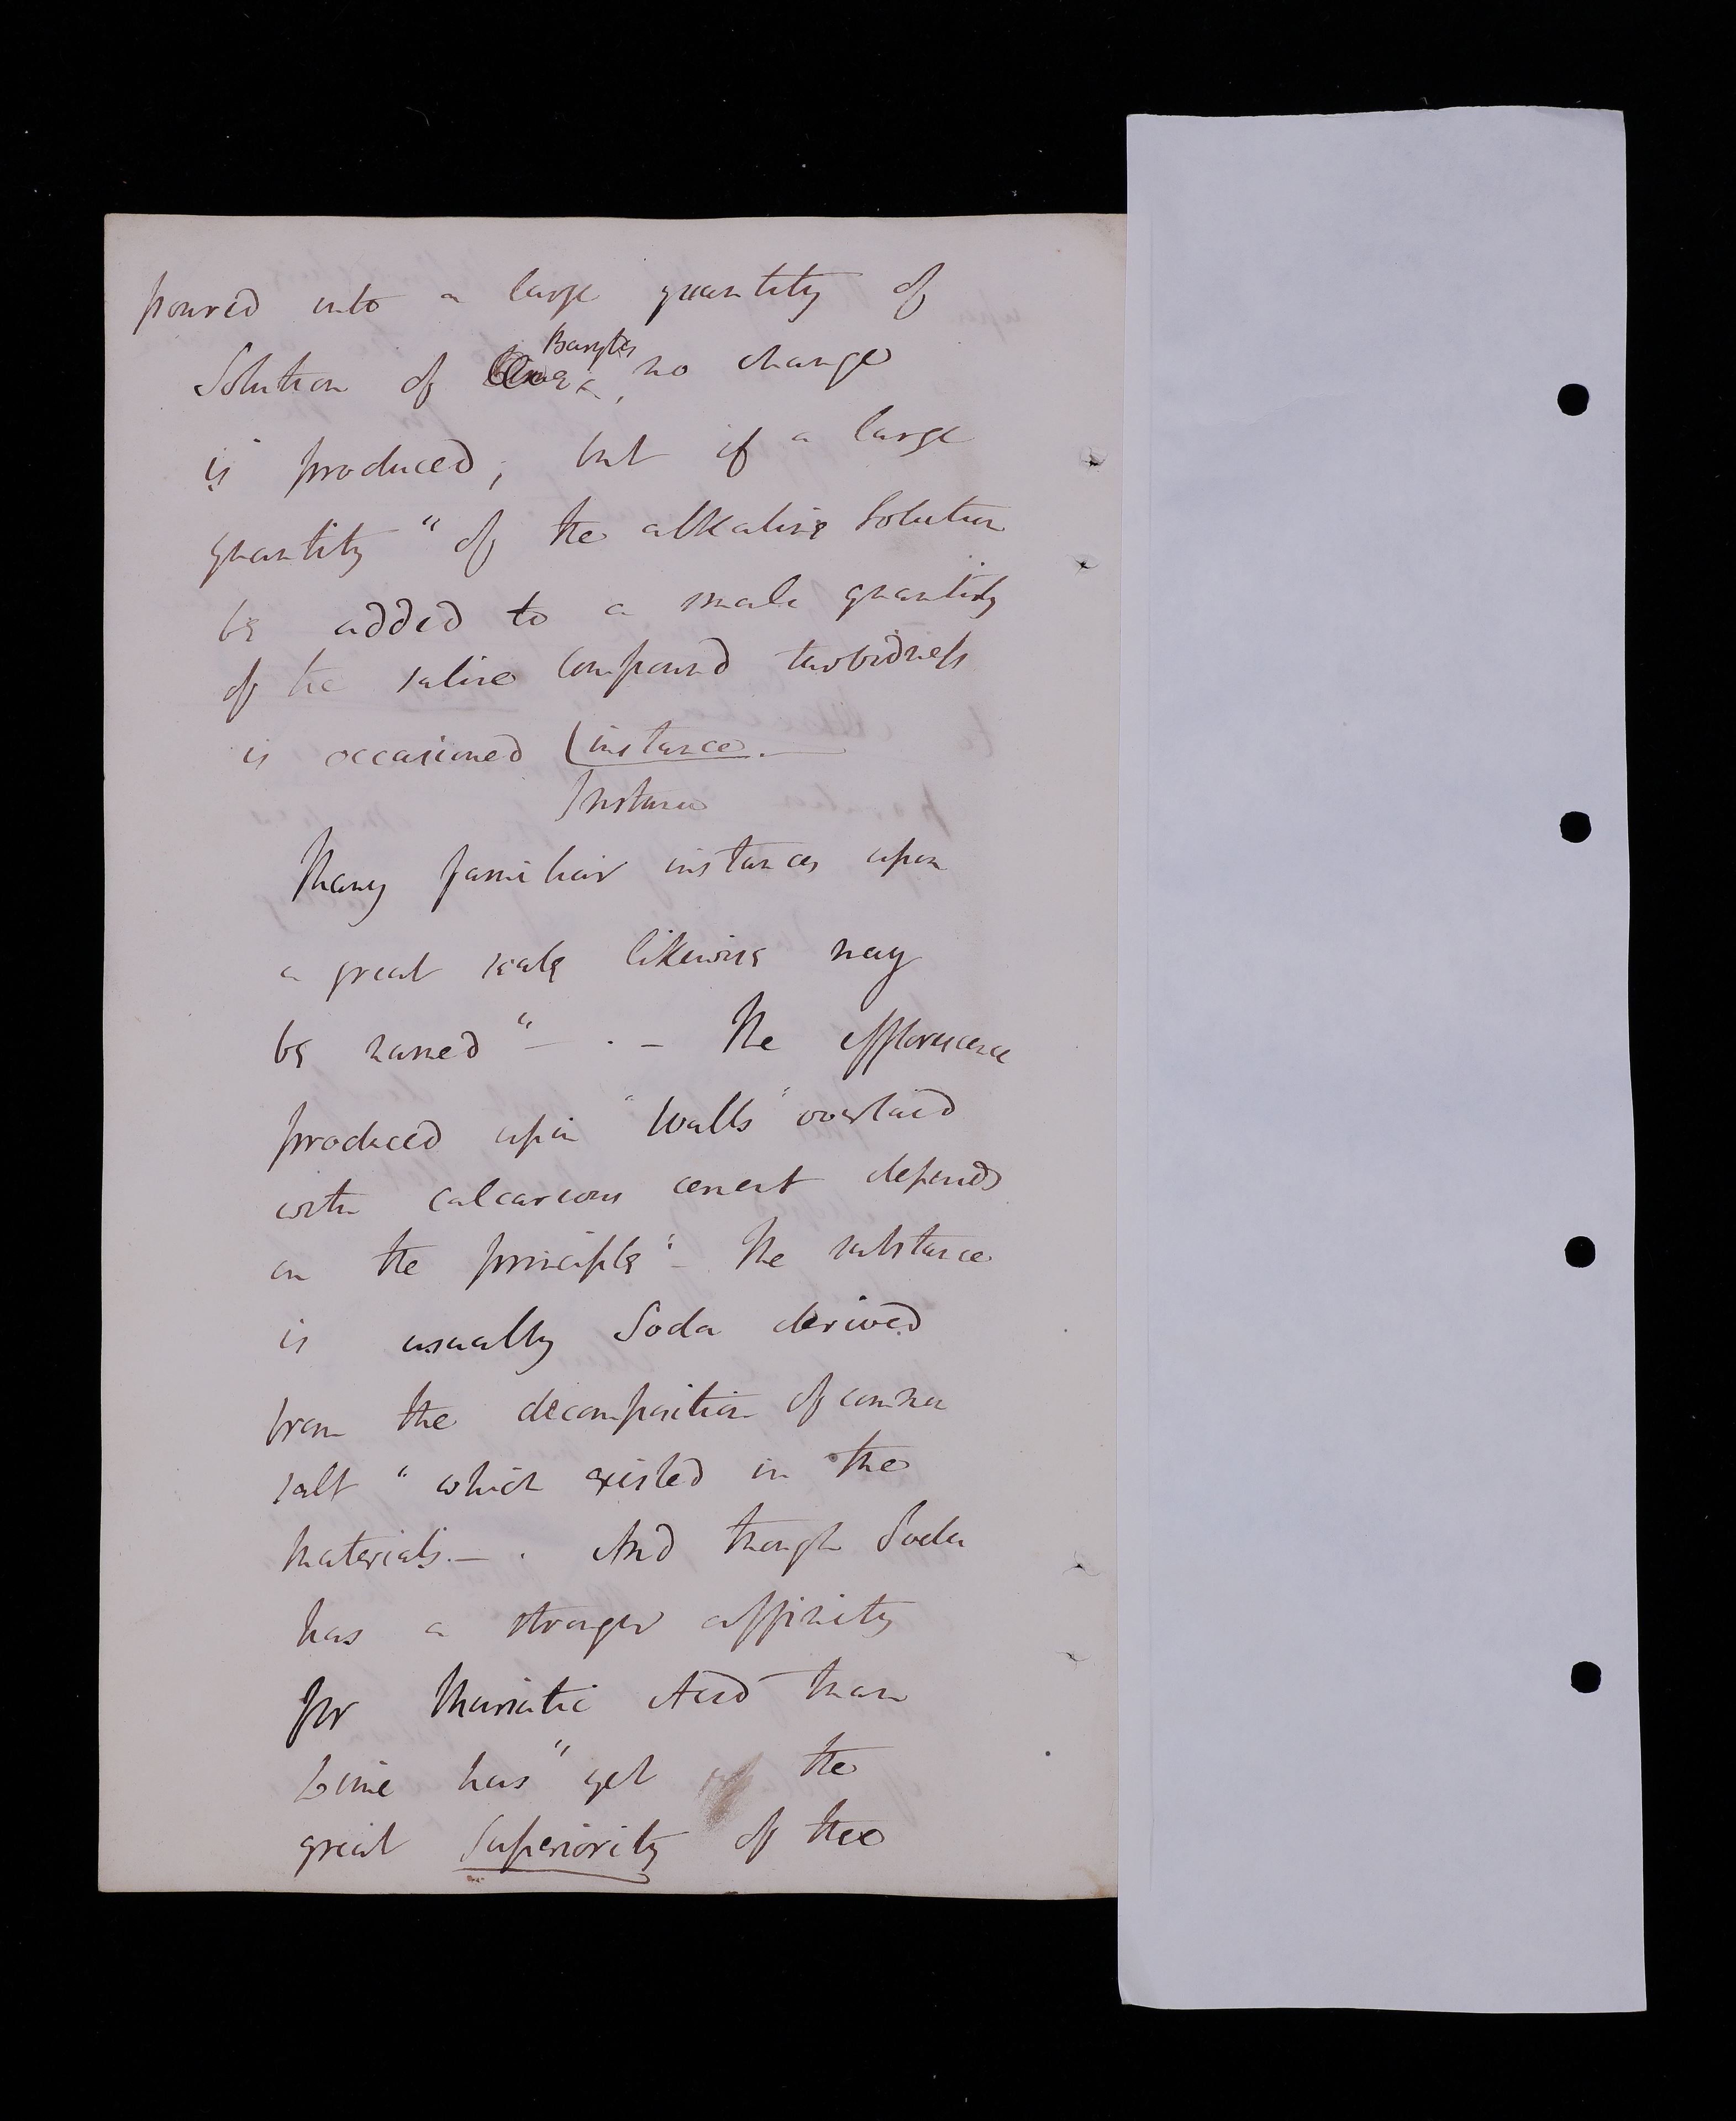 poured into a large quantity of
Barytes
Solution of , no change
is produced; but if a large
quantity " of the alkaline Solution
be added to a small quantity
of the saline Compound turbidness
is occasioned (instance. —
Instance
Many familiar instances upon
a great scale likewise may
be named " — . — The efflorescence
produced upon "Walls" overlaid
with calcareous cement depends
on the principle " - The substance
is usually Soda derived
from the decomposition of common
salt " which existed in the
materials. — . And though Soda
has a stronger affinity
for Muriatic Acid than
Lime has " yet the
great Superiority of the